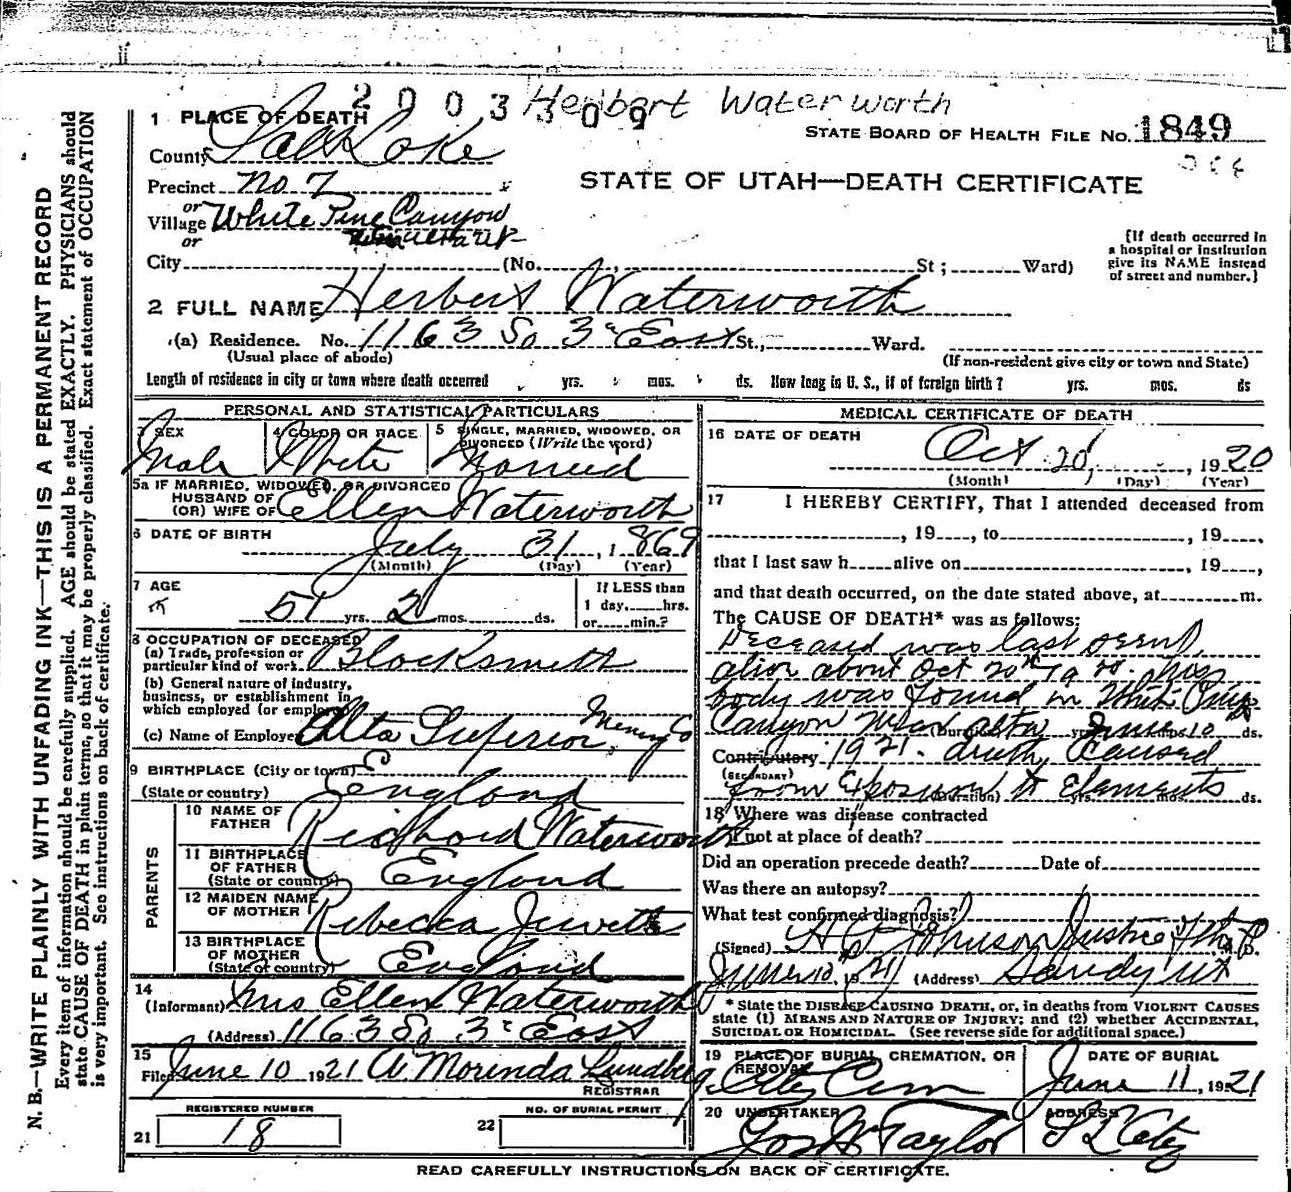 2003309 Heribart Waterworth
1 PLACE OF DEATH
STATE BOARD OF HEALTH FILE No. 1849
County Salt Lake
Precinct No 7
STATE OF UTAH—DEATH CERTIFICATE
or
Village White Pine Canyon
or
City (No. St; Ward)
{If death occurred in
a hospital or institution
give its NAME instead
of street and number.}
2 FULL NAME Herbert Waterworth
(a) Residence. No. 1163 So 3d East St., Ward.
(Usual place of abode) (If non-resident give city or town and State)
Length of residence in city or town where death occurred yrs. mos. ds. How long in U. S., if of foreign birth? yrs. mos. ds
PERSONAL AND STATISTICAL PARTICULARS
3 SEX 4 COLOR OR RACE 5 SINGLE, MARRIED, WIDOWED, OR
DIVORCED (Write the word)
Male White Married
5a IF MARRIED, WIDOWED, OR DIVORCED
HUSBAND OF
(OR) WIFE OF Ellen Waterworth
6 DATE OF BIRTH
July 31, 1869
(Month) (Day) (Year)
7 AGE
If LESS than
51 yrs. 2 mos. ds. 1 day, hrs.
or min.?
8 OCCUPATION OF DECEASED
(a) Trade, profession or
particular kind of work Blacksmith
(b) General nature of industry,
business, or establishment in
which employed (or employer)
(c) Name of Employer Alta Superior Mining Co
9 BIRTHPLACE (City or town)
(State or country) England
PARENTS
10 NAME OF
FATHER Richard Waterworth
11 BIRTHPLACE
OF FATHER
(State or country) England
12 MAIDEN NAME
OF MOTHER Rebecka Jewett
13 BIRTHPLACE
OF MOTHER
(State or country) England
14
(Informant) Mrs Ellen Waterworth
(Address) 1163 So 3d East
15
Filed June 10 1921 A Morinda Lundberg
REGISTRAR
REGISTERED NUMBER
21 18
NO. OF BURIAL PERMIT
22
MEDICAL CERTIFICATE OF DEATH
16 DATE OF DEATH
Oct 20, 1920
(Month) (Day) (Year)
17 I HEREBY CERTIFY, That I attended deceased from
, 19 , to , 19 ,
that I last saw h alive on , 19 ,
and that death occurred, on the date stated above, at m.
The CAUSE OF DEATH* was as follows:
Deceased was last seen
alive about Oct 20th 1920 his
body was found in White Pine
Canyon near Alta June 10th
(Duration) yrs. mos. ds.
Contributory 1921. death caused
(SECONDARY)
from Exposure to Elements
(Duration) yrs. mos. ds.
18 Where was disease contracted
if not at place of death?
Did an operation precede death? Date of
Was there an autopsy?
What test confirmed diagnosis?
(Signed) Johnson Justice of the P M. D.
June 10, 1921 (Address) Sandy Ut
* State the DISEASE CAUSING DEATH, or, in deaths from VIOLENT CAUSES
state (1) MEANS AND NATURE OF INJURY; and (2) whether ACCIDENTAL,
SUICIDAL OR HOMICIDAL. (See reverse side for additional space.)
19 PLACE OF BURIAL, CREMATION, OR
REMOVAL
City Cem
DATE OF BURIAL
June 11, 1921
20 UNDERTAKER
Jos Wm Taylor
ADDRESS
S L City
READ CAREFULLY INSTRUCTIONS ON BACK OF CERTIFICATE.
N. B.—WRITE PLAINLY WITH UNFADING INK—THIS IS A PERMANENT RECORD
Every item of information should be carefully supplied. AGE should be stated EXACTLY. PHYSICIANS should
state CAUSE OF DEATH in plain terms, so that it may be properly classified. Exact statement of OCCUPATION
is very important. See instructions on back of certificate.